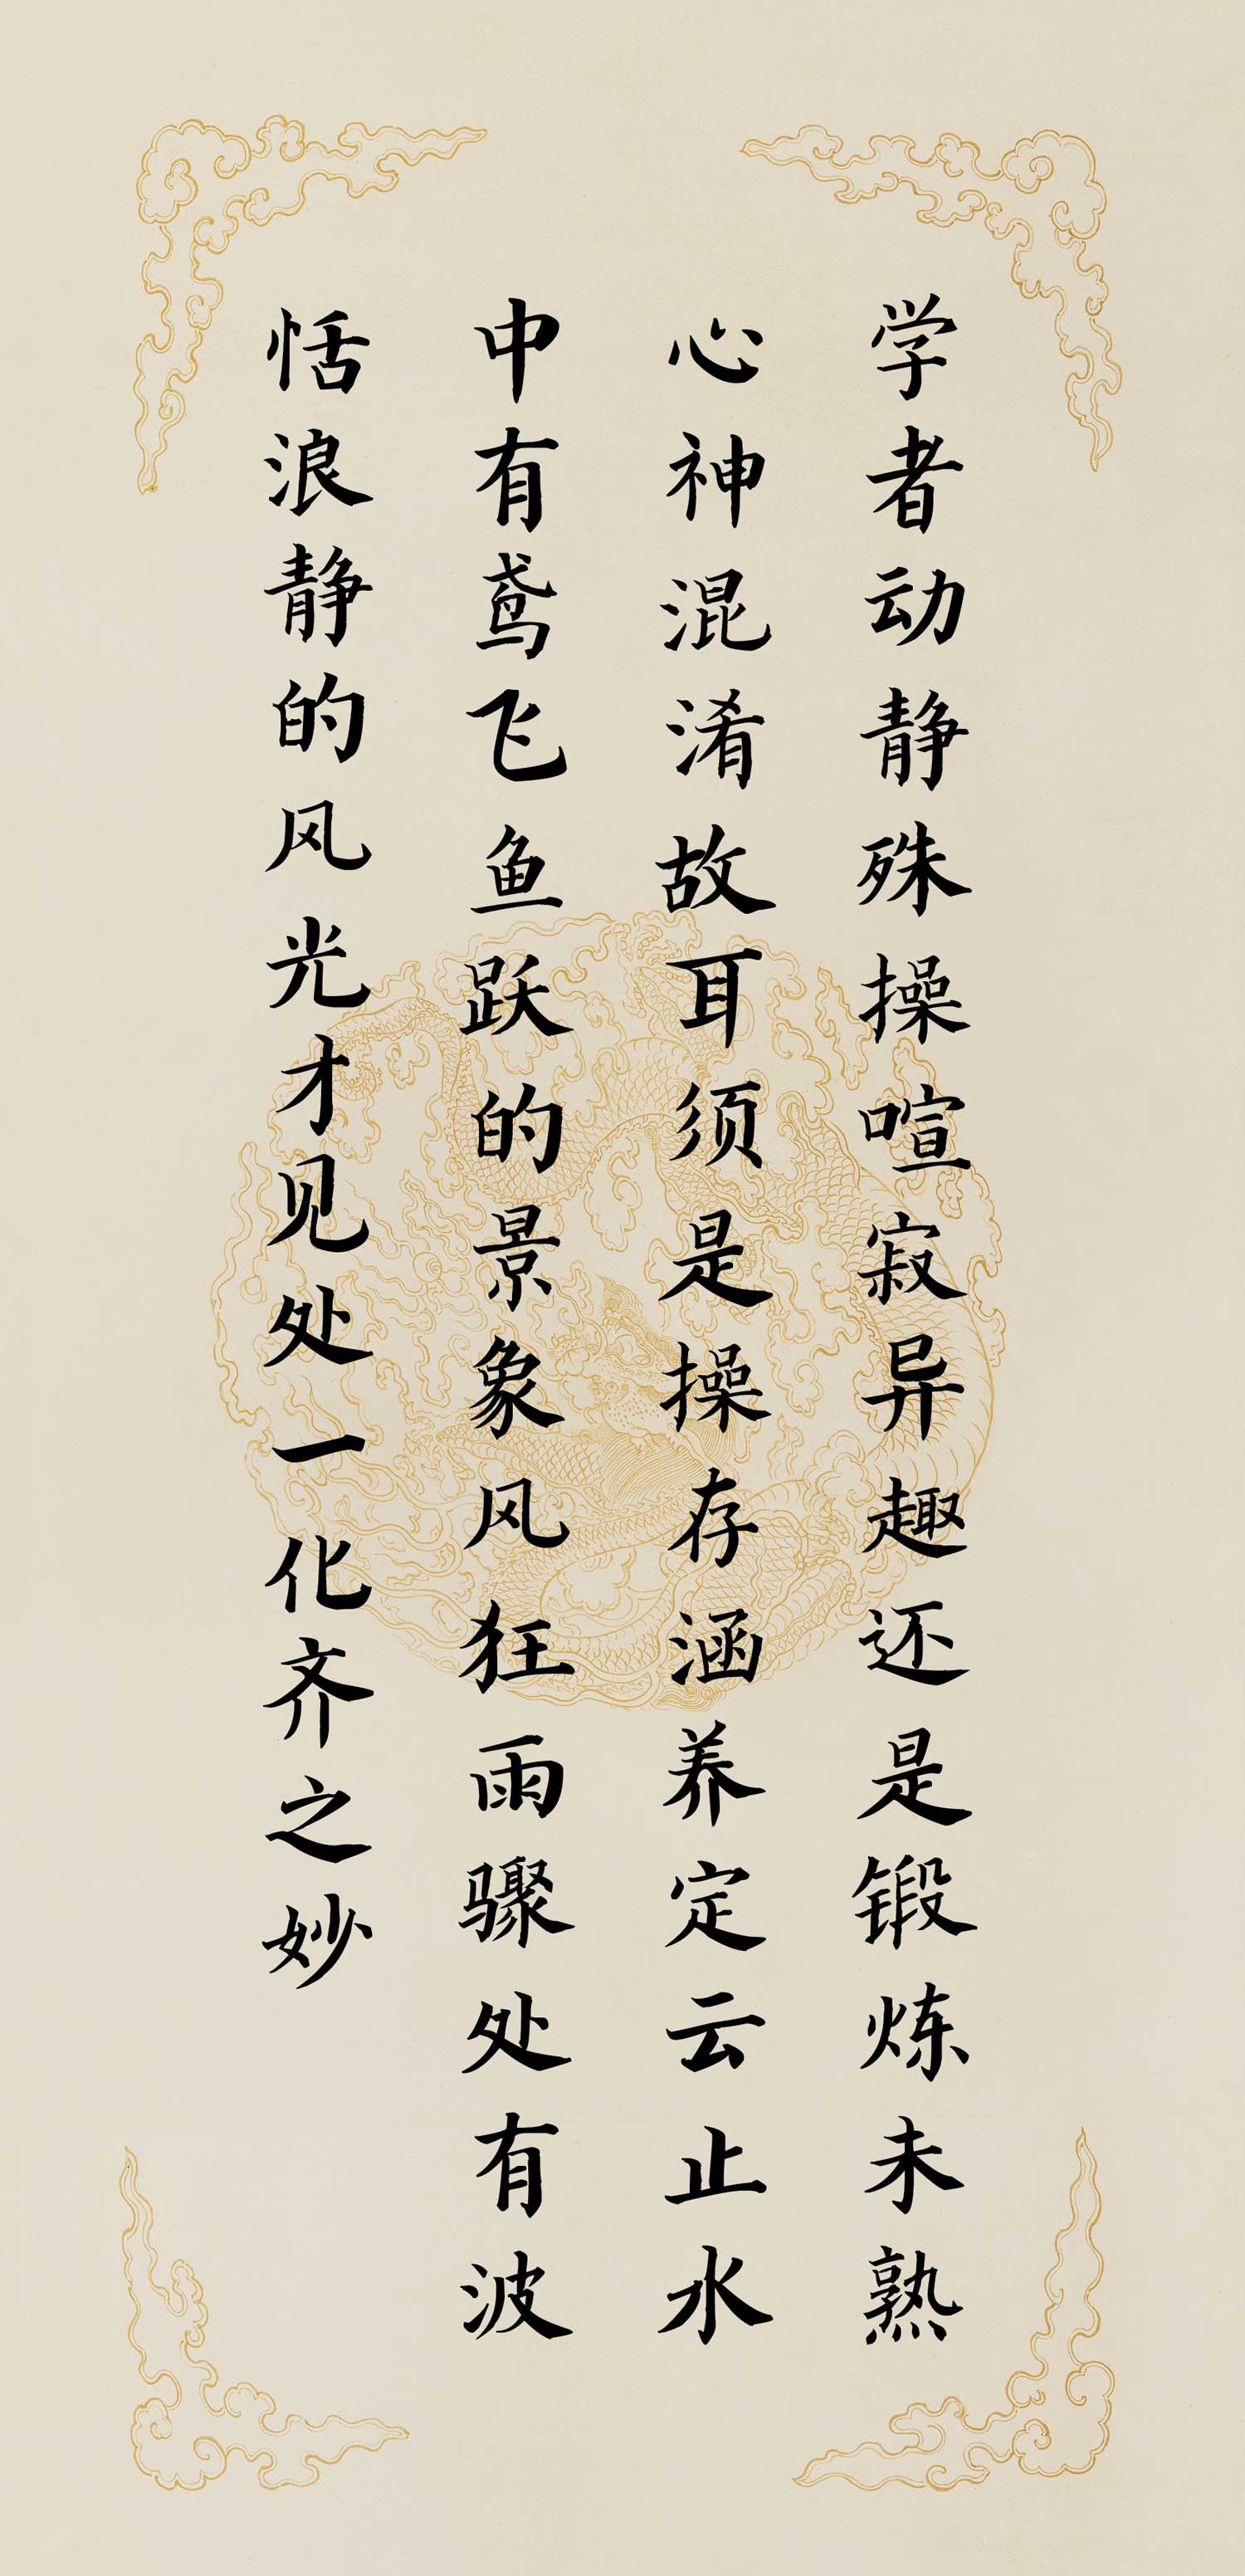 学者动静殊操喧寂异趣还是锻炼未熟
心神混淆故耳须是操存涵养定云止水
中有鸢飞鱼跃的景象风狂雨骤处有波
恬浪静的风光才见处一化齐之妙